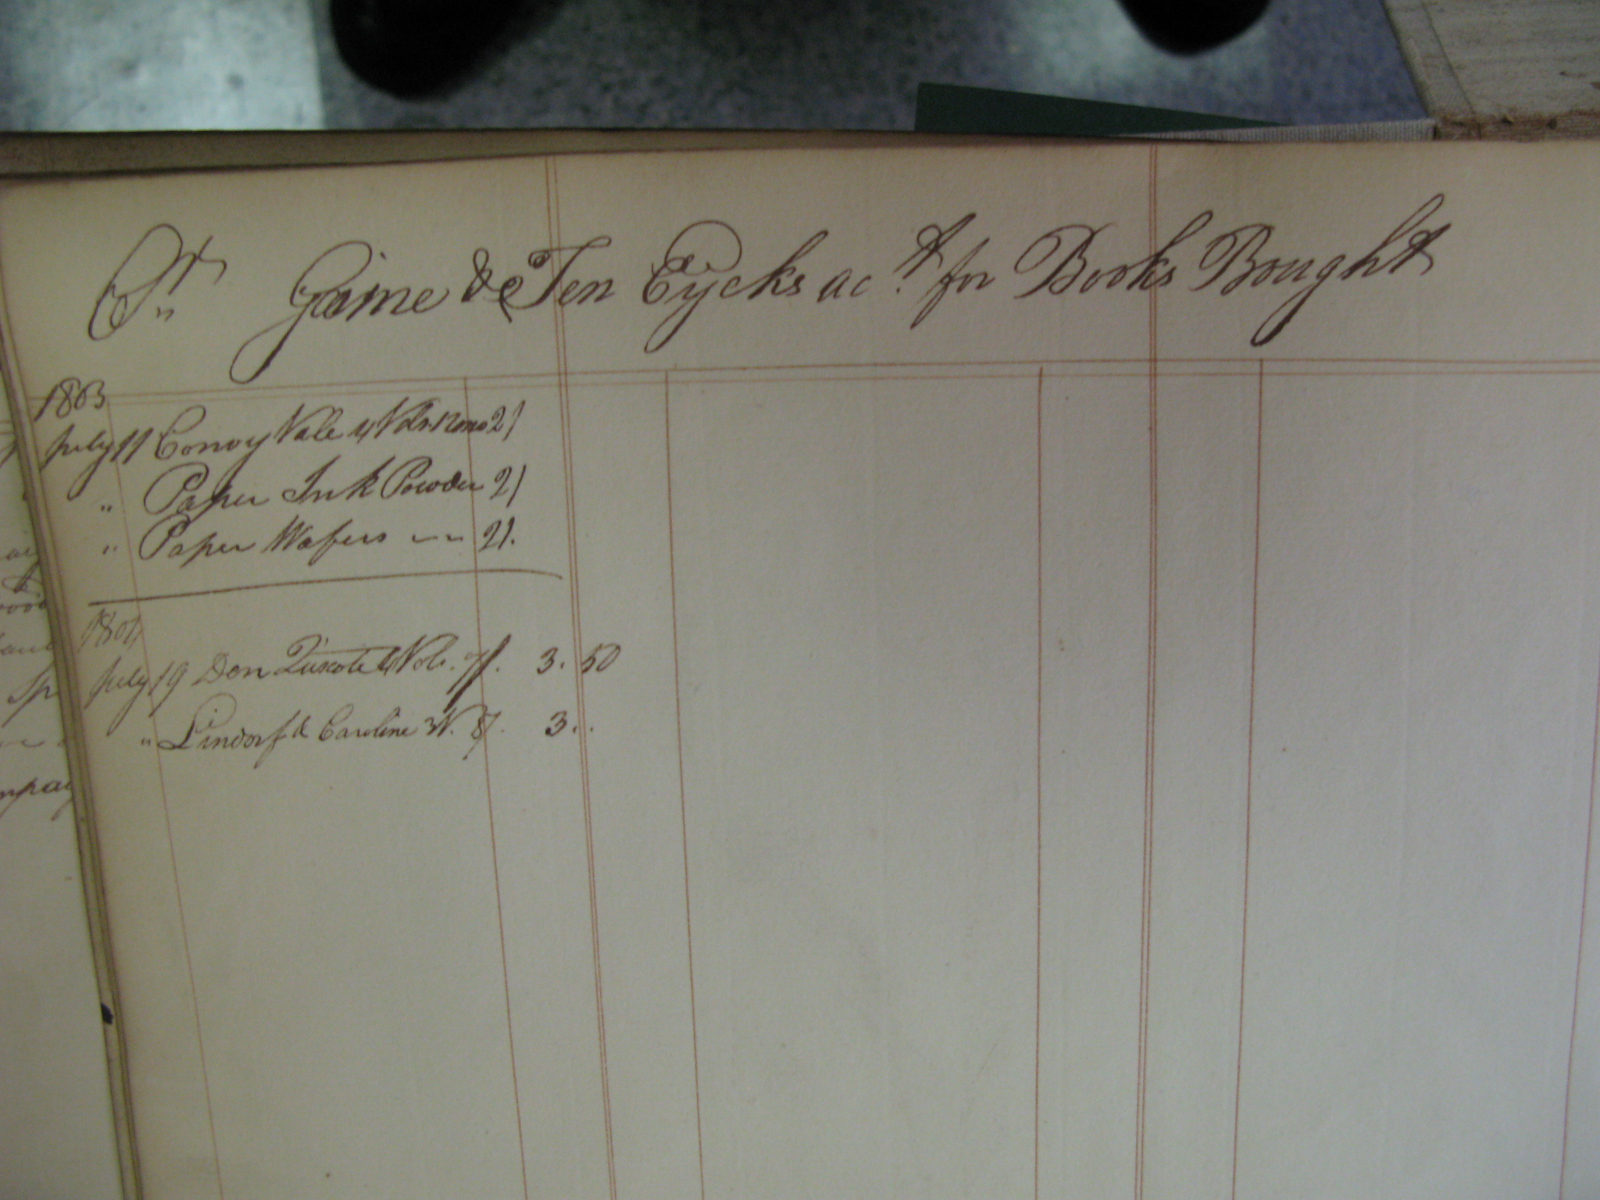 Cr. Gaine & Ten Eycks ac.t for Books Bought
1803
July 11 Conoy Vale 4 Vols. 12mo 21
" Paper Ink Powder 21
" Paper Wafers -- 21.
1804
July 19 Don Quixote 4 Vols. 7/. 3. 50
" Lindorf & Caroline 3V. 8/. 3..